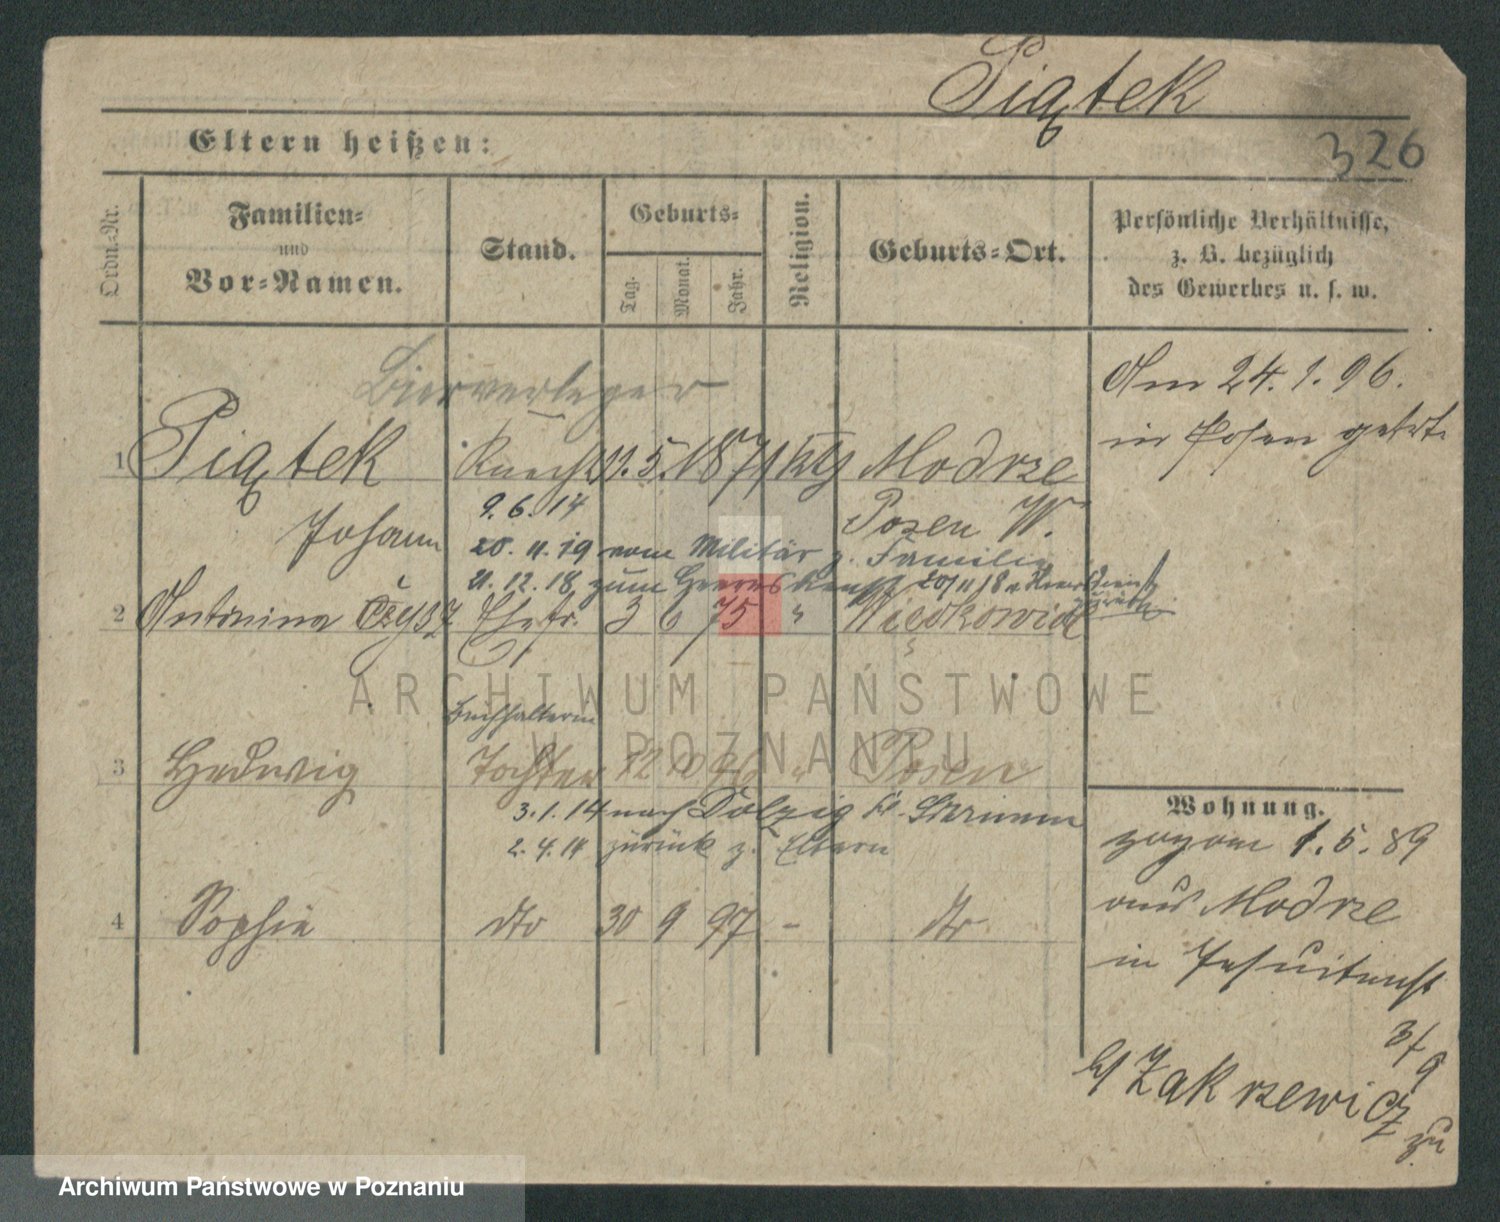 Piątek
326
Eltern heißen:
Ordn.-Nr.
Familien-
und
Vor-Namen.
Stand.
Geburts-
Tag.
Monat.
Jahr.
Religion.
Geburts-Ort.
Persönliche Verhältnisse,
z. B. bezüglich
des Gewerbes u. s. w.
Bierverleger
Am 24. 1. 96.
in Posen getrt.
1 Piątek Knecht 11. 5. 1871 ktg Modrze
Johann 9. 6. 14 Posen W.
20. 11. 19 vom Militär z. Familie
21. 12. 18 zum Heeresdienst 20/11 18 v. Heeresdienst
zurück
2 Antonina Czysz Ehefr. 3 6 75 "
Buchhalterin
3 Hedwig Tochter 12 10 96 " Posen
3. 1. 14 nach Dolzig Kr. Schrimm
2. 4. 14 zurück z. Eltern
4 Sophie dto 30 9 97 - dto
Wohnung.
zogen 1. 5. 89
aus Modrze
in Jesuitenst
3/9
b/ Zakrzewicz
zu
ARCHIWUM PAŃSTWOWE
W POZNANIU
Archiwum Państwowe w Poznaniu